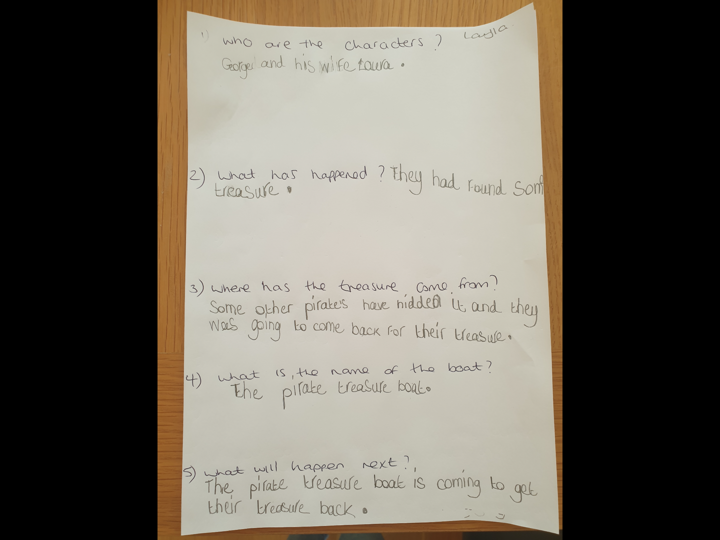 1) who are the characters? Layla
George and his wife
2) what has happened? They had Found Som
treasure.
3) where has the treasure come from?
Some other pirates have hidded it and they
was going to come back For their treasure.
4) what is the name of the boat?
The pirate treasure boat.
5) what will happen next?
The pirate treasure boat is coming to get
their treasure back.